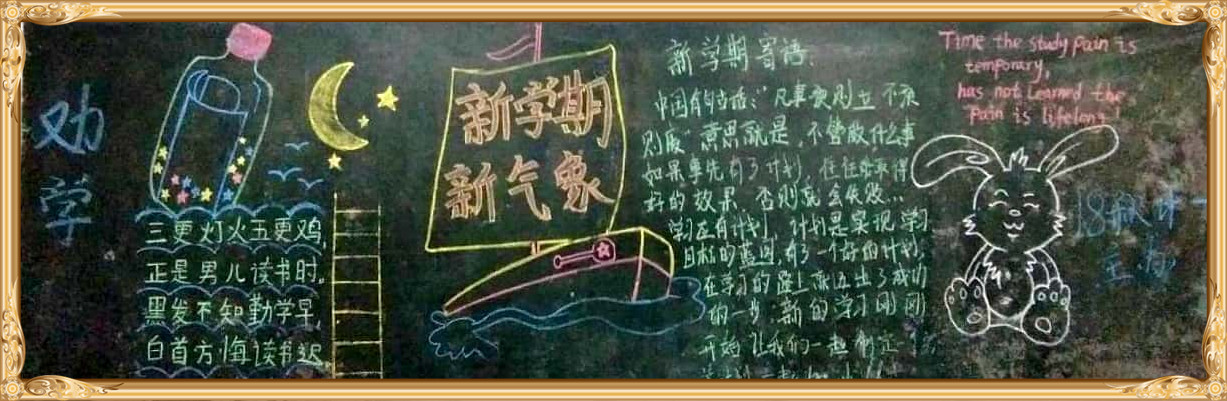 劝
学
三更灯火五更鸡,
正是男儿读书时,
黑发不知勤学早,
白首方悔读书迟
新学期
新气象
新学期寄语:
中国有句古话:“凡事预则立 不预
则废”意思就是,不管做什么事
如果事先有了计划,往往会取得
好的效果,否则就会失败...
学习应有计划,计划是实现学习
目标的蓝图,有了一个好的计划,
在学习的路上就迈出了成功
的一步,新的学习刚刚
开始 让我们一起制定
Time the study pain is
temporary,
has not Learned the
Pain is lifelong!
18级
主办